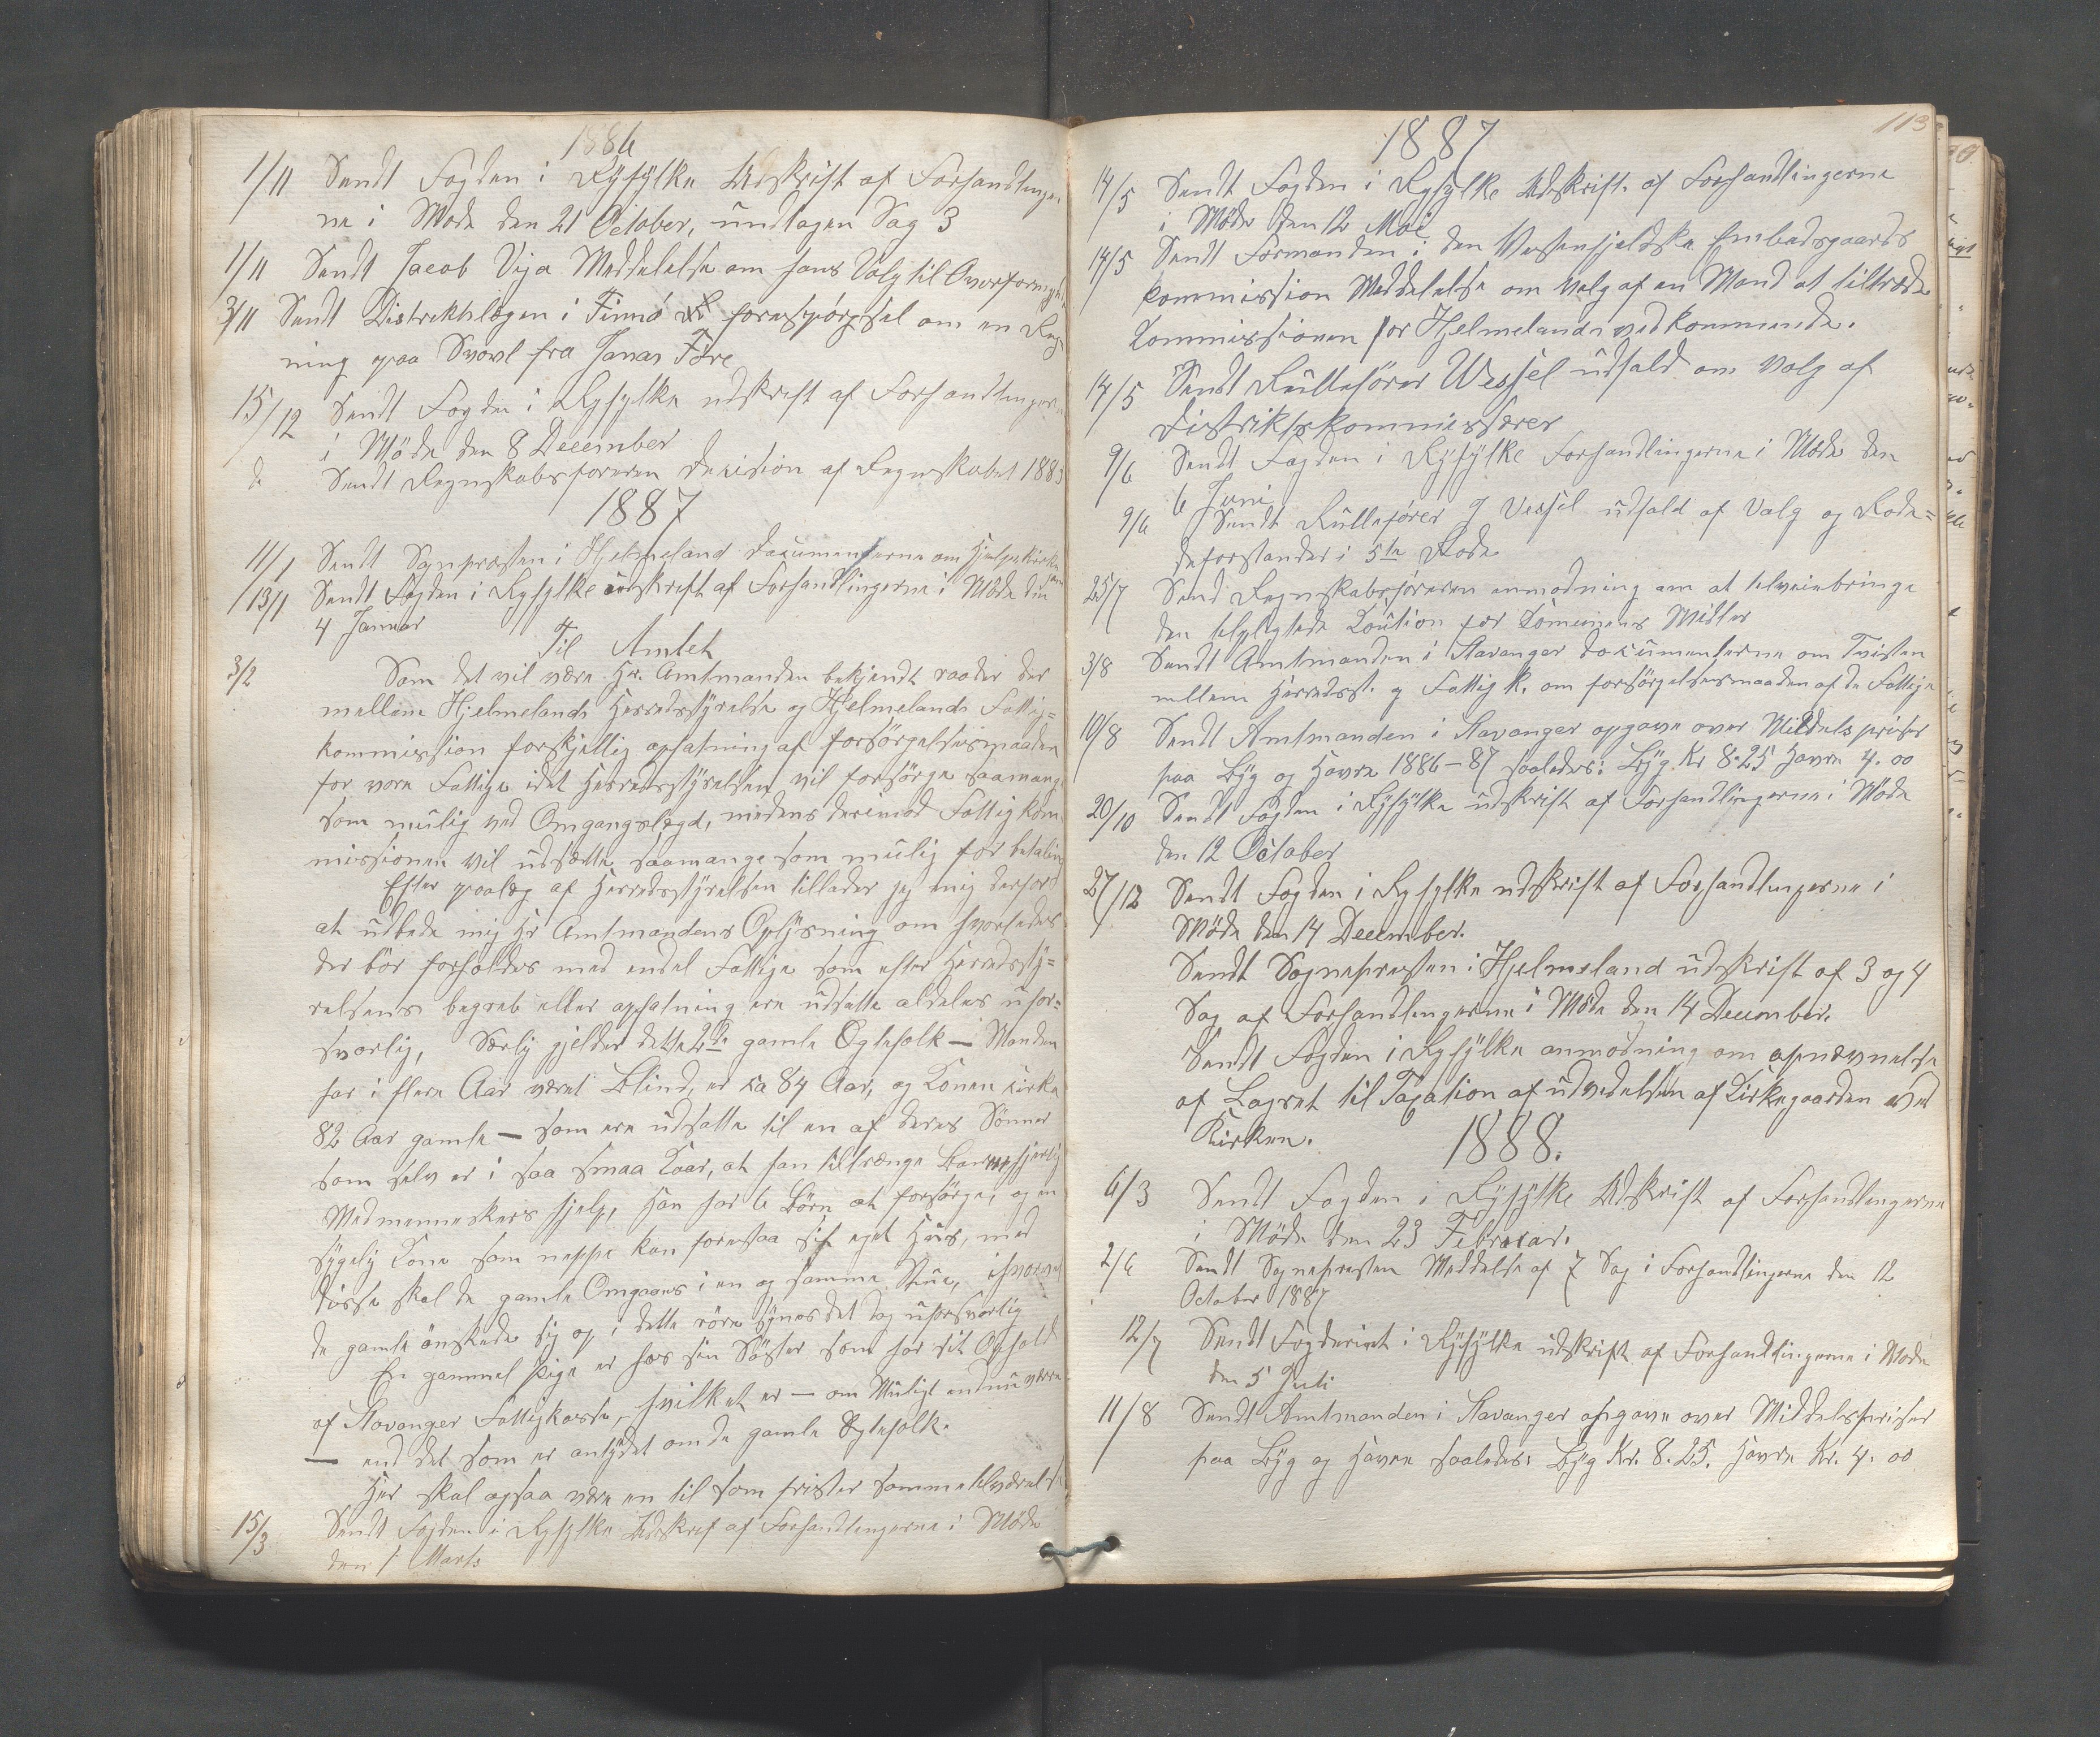 1886
1/11 Sendt Fogden i Ryfylke Udskrift af Forhandlinger-
ne i Møde den 21 October, undtagen Sag 3
1/11 Sendt Jacob Viga Meddelelse om hans Valg til Overformynder
3/11 Sendt Distriktslægen i Finnö forespörgsel om en Reg-
ning paa Svovl fra Jonas Före
15/12 Sendt Fogden i Ryfylke udskrift af Forhandlingerne
i Möde den 8 December
do Sendt Regnskabsføreren Decision af Regnskabet 1885
1887
11/1 Sendt Sognpresten i Hjelmeland Documenterne om Hjelpekirke
13/1 Sendt Fogden i Ryfylke udskrift af Forhandlingerne i Möde den
4 Januar
Til Amtet
3/2 Som det vil være Hr. Amtmanden bekjendt raader der
mellem Hjelmelands Herredsstyrelse og Hjelmelands Fattig=
kommission forskjellig opfatning af forsörgelsesmaaden
for vore Fattige idet Herredsstyrelsen vil forsörge saamange
som mulig ved Omgangslægd, medens derimod Fattigkom
missionen vil udsætte saamange som mulig for betaling
Efter paalæg af Herredsstyrelsen tillader jeg mig derfor
at udbede mig Hr Amtmandens Oplysning om hvorledes
der bör forholdes med endel Fattige som efter Herredssty=
relsens begreb eller opfatning ere udsatte aldeles ufor=
svarlig, Særlig gjelder dette 2de gamle Ægtefolk — Manden
har i flere Aar været Blind, er ca 84 Aar, og Konen cirka
82 Aar gamle — som ere udsatte til en af deres Sönner
som selv er i saa smaa Kaar, at han tiltrænge Barmhjertig
Medmenneskers hjelp, Han har 6 Börn at forsörge, og en
sygelig Kone som neppe kan forestaa sit eget Hus, med
disse skal de gamle Omgaaes i en og samme Stue, ihvorvel
de gamle önskede sig op i dette röre synes det dog uforsvarlig
En gammel Pige er hos sin Söster som har sit Ophold
af Stavanger Fattigkasse, hvilket er — om Muligt endnu værre
— end det som er antydet om de gamle Ægtefolk.
Her skal ogsaa være en til som frister samme tilværelse
15/3 Sendt Fogden i Ryfylke Udskrif af Forhandlingerne i Möde
den 1 Marts
113
1887
14/5 Sendt Fogden i Ryfylke Udskrift af Forhandlingerne
i Möde den 12 Mai
14/5 Sendt Formanden i den Vestenfjeldske Embedsgaards
kommission Meddelelse om Valg af en Mand at tiltræde
Kommissionen for Hjelmelands vedkommende.
14/5 Sendt Rulleförer Wessel udfald om Valg af
Distriktskommissærer
9/6 Sendt Fogden i Ryfylke Forhandlingerne i Möde den
6 Juni
9/6 Sendt Rulleförer Vessel udfald af Valg og Rode=
deforstander i 5te Rode
25/7 Send Regnskabsföreren anmodning om at tilveiebringe
den tilpligtede Kaution for Komunens Midler
3/8 Sendt Amtmanden i Stavanger Documenterne om Tvisten
mellem Herredsst. og Fattig K. om forsörgelsesmaaden af de Fattige
10/8 Sendt Amtmanden i Stavanger opgave over Middelspriser
paa Byg og Havre 1886-87 saaledes: Byg Kr 8.25 Havre 4.00
20/10 Sendt Fogden i Ryfylke udskrift af Forhandlingerne i Möde
den 12 October
27/12 Sendt Fogden i Ryfylke udskrift af Forhandlingerne i
Möde den 14 December.
Sendt Sognepresten i Hjelmeland udskrift af 3 og 4
Sag af Forhandlingerne i Möde den 14 December.
Sendt Fogden i Ryfylke anmodning om opnævnelse
af Lagret til Taxation af udvidelsen af Kirkegaarden ved
Kirken.
1888.
6/3 Sendt Fogden i Ryfylke Udskrift af Forhandlingerne
i Möde den 23 Februar.
2/6 Sendt Sognepresten Meddelse af 7 Sag i Forhandlingerne den 12
October 1887
12/7 Sendt Fogderiet i Ryfylke udskrift af Forhandlingerne i Møde
den 5 Juli
11/8 Sendt Amtmanden i Stavanger opgave over Middelspriser
paa Byg og Havre saaledes: Byg Kr. 8.25. Havre Kr. 4.00